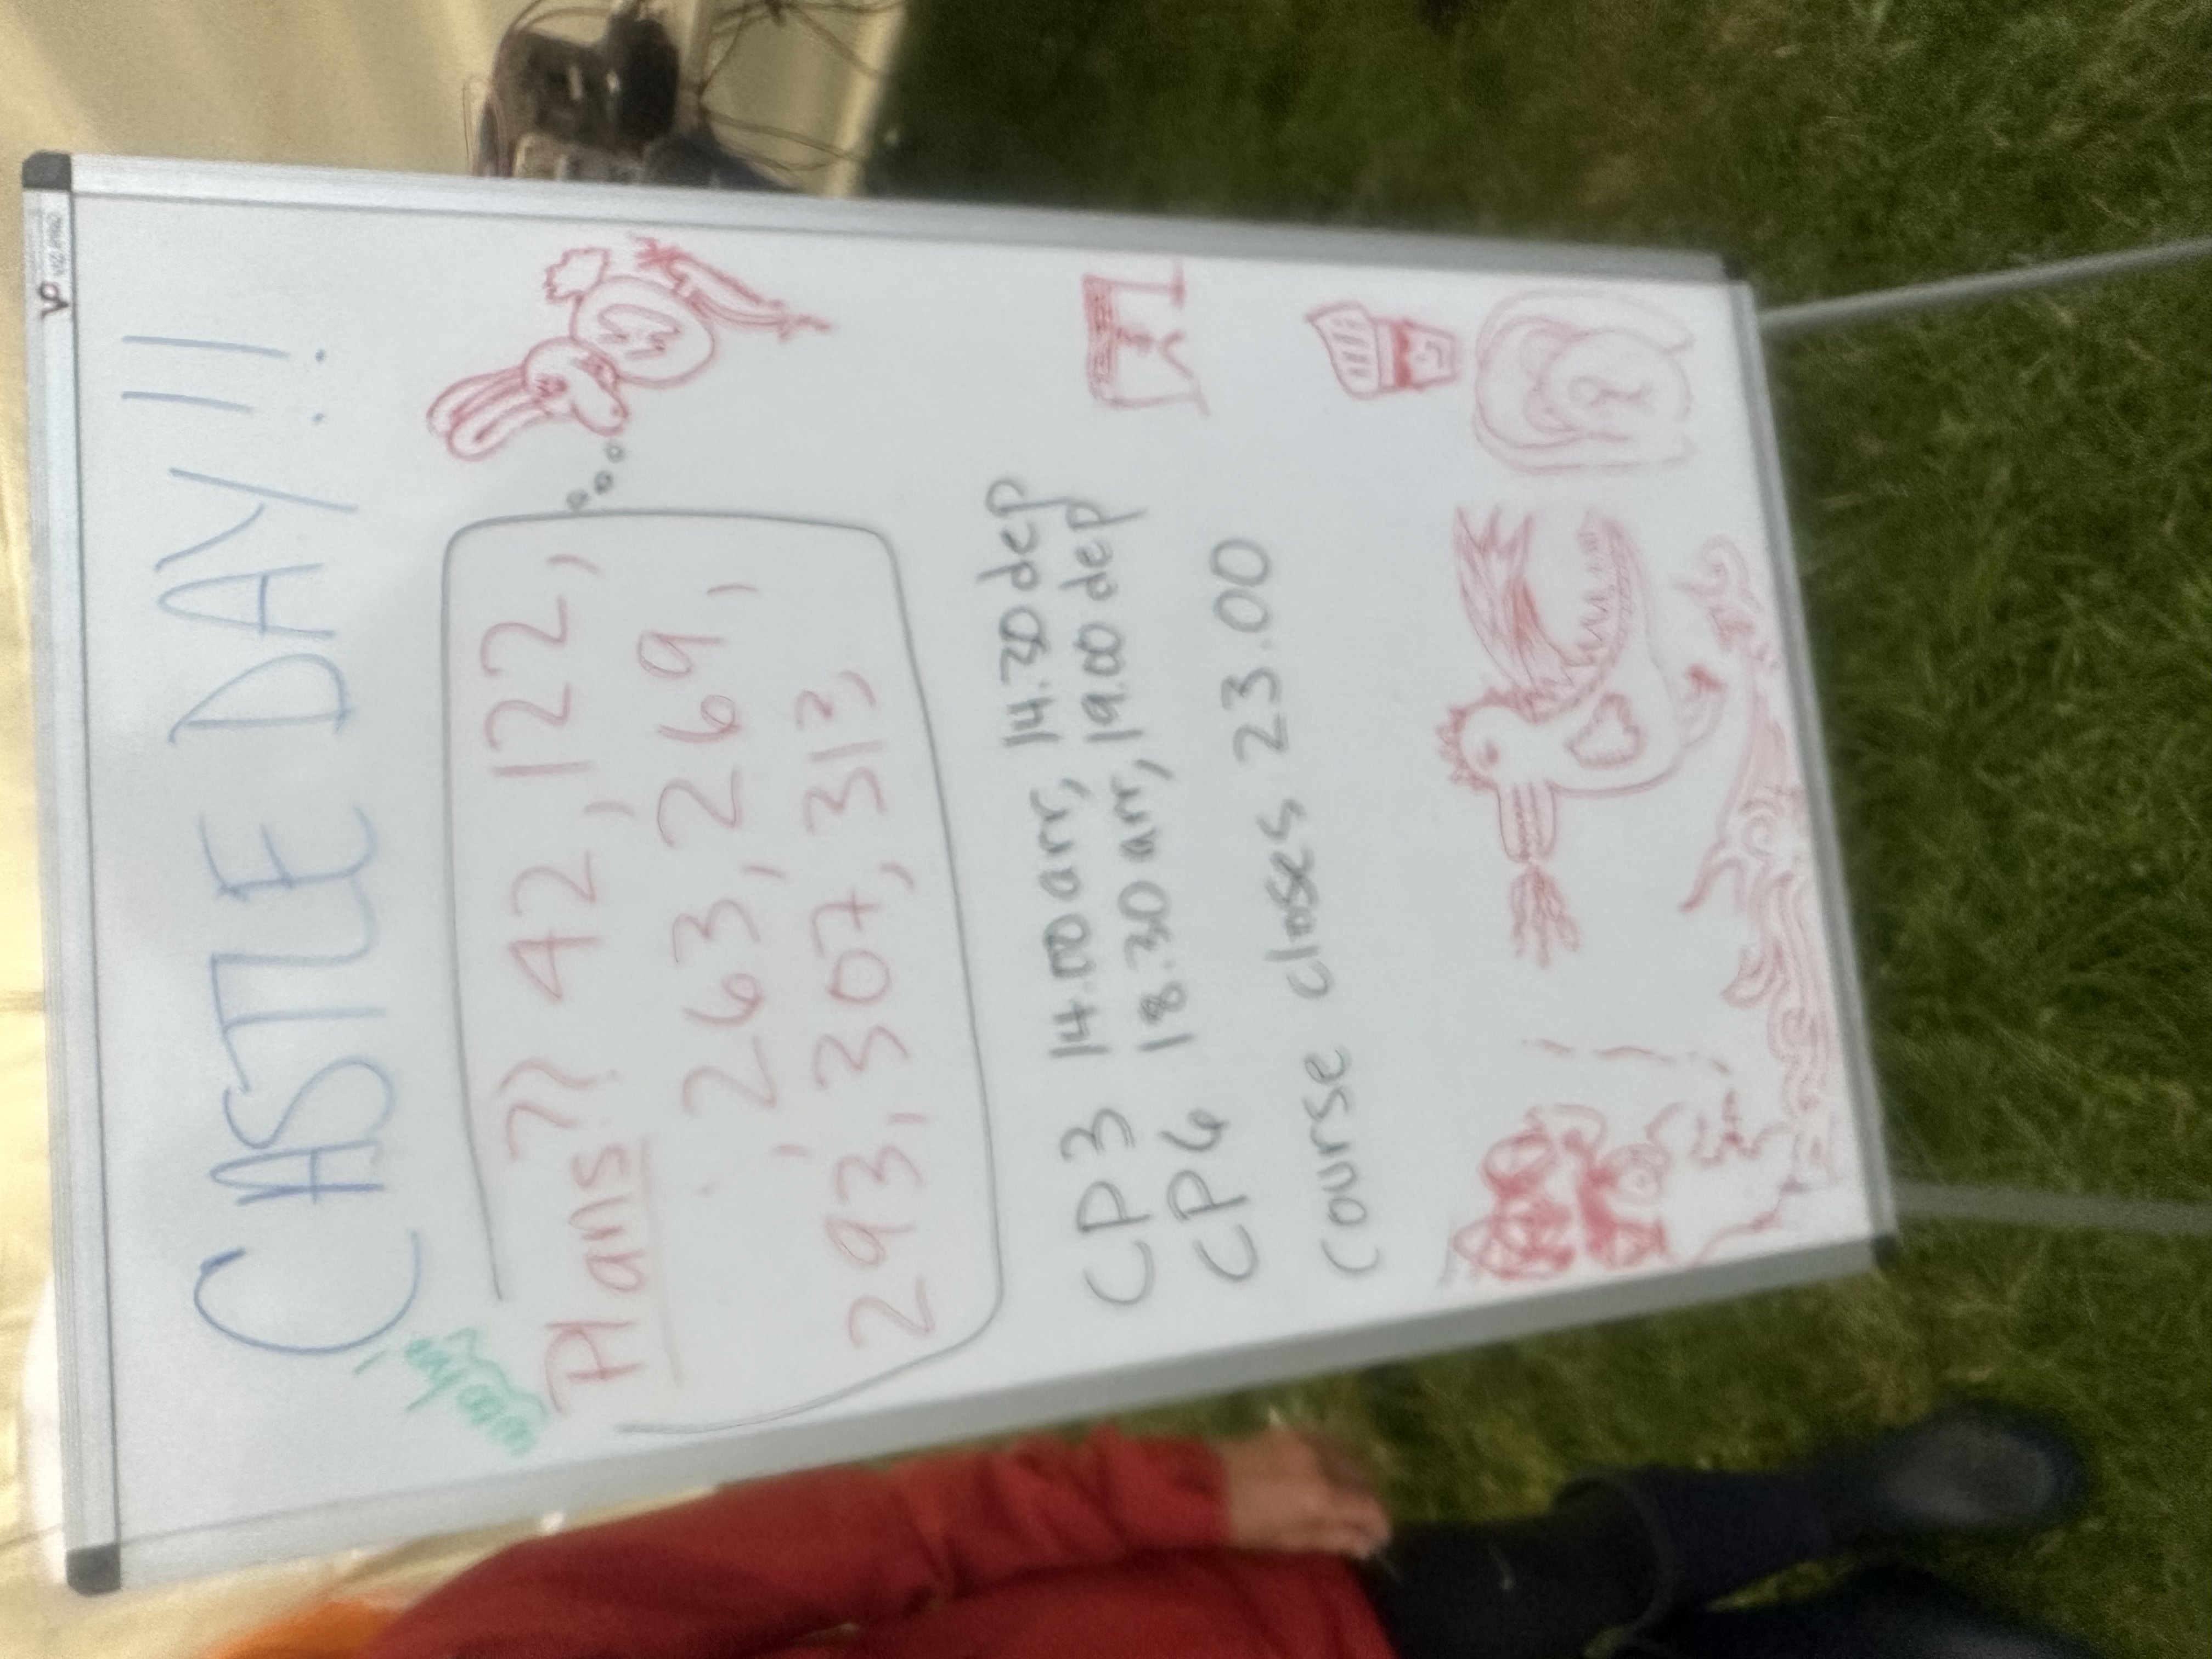 CASTLE DAY!!
woohoo!
Plans?? 42, 122,
, 263, 269,
293, 307, 313
CP3 14.00 arr, 14.30 dep
CP6 18.30 arr, 19.00 dep
course closes 23.00